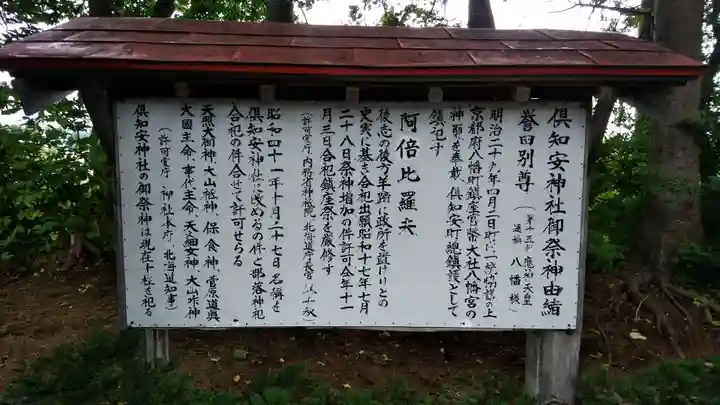 倶知安神社御祭神由緒
誉田別尊（第十五代 應神天皇 通称 八幡様）
明治二十九年四月二日町に一統の上
京都府八幡町鎮座官幣大社八幡宮の
神璽を奉載 倶知安町總鎮護として
鎮祀す
阿倍比羅夫
後志の後方羊蹄に政所を置けりとの
史実に基き合祀出願昭和十七年七月
二十八日祭神増加の件許可仝年十一
月三日合祀鎮座祭を厳修す
（許可官庁、内務省神祗院、北海道庁長官
昭和四十一年十月二十七日名稱を
倶知安神社に改めるの件と部落神祀
合祀の件合せて許可せらる
天照大御神、大山祗神、保食神、菅原道眞
大國主命、事代主命、天細女神、大山咋神
（許可官庁、神社本庁、北海道知事）
倶知安神社の御祭神は現在十柱を祀る